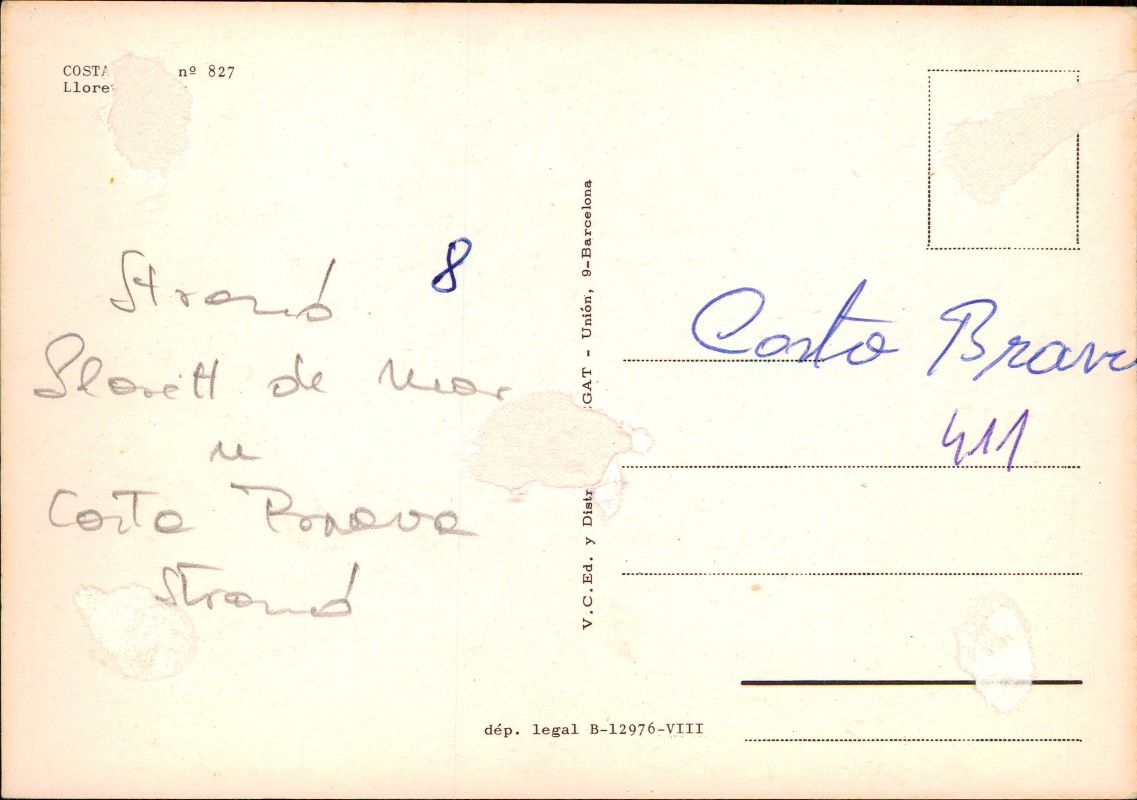 COSTA nº 827
Llore
Strand 8
Slorett de Mar
u
Costa Brava
Strand
V.C.Ed. y Distr GAT - Unión, 9-Barcelona
Costa Brava
411
dép. legal B-12976-VIII